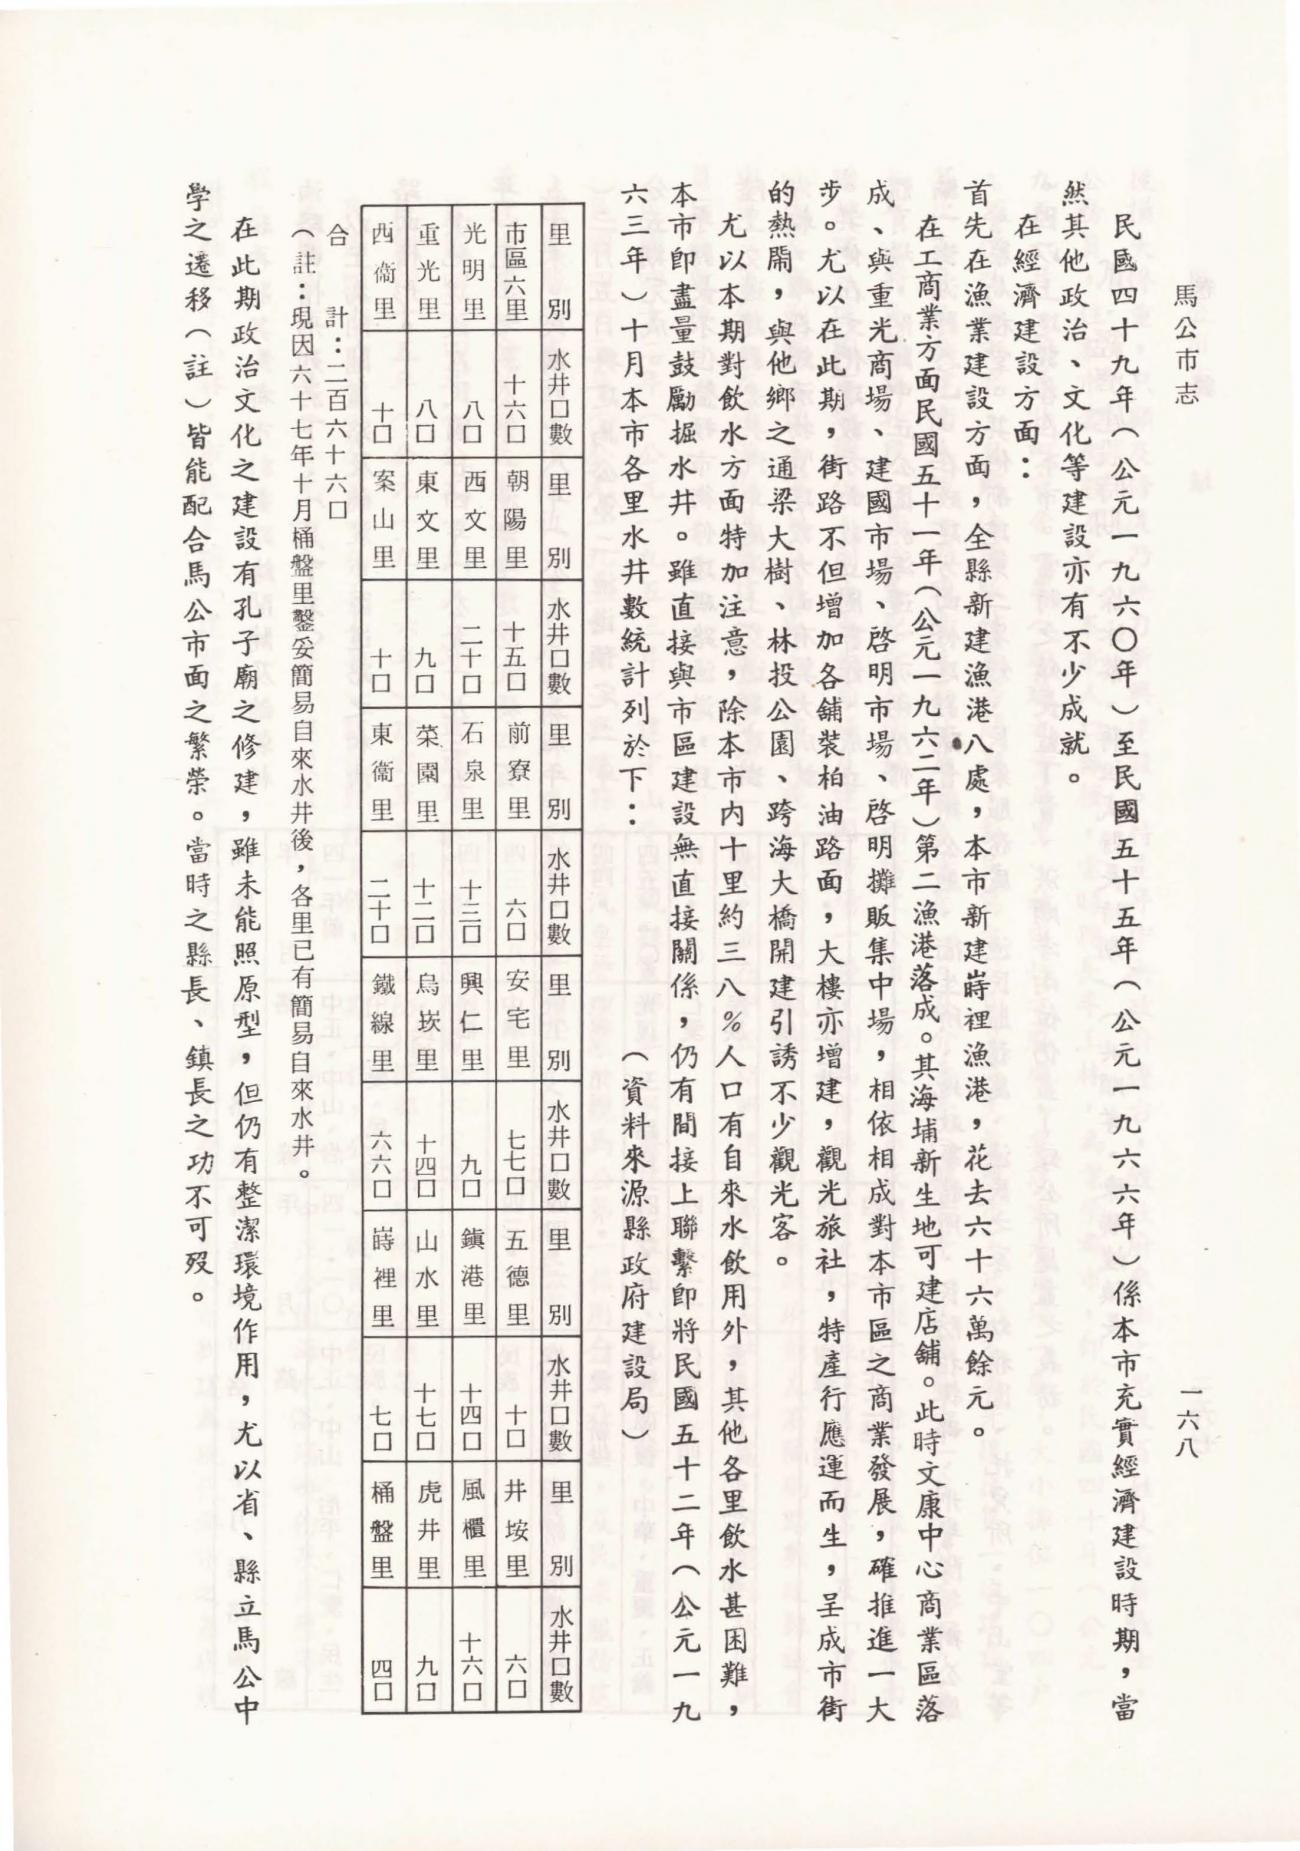 馬公市志
一六八
民國四十九年（公元一九六〇年）至民國五十五年（公元一九六六年）係本市充實經濟建設時期，當
然其他政治、文化等建設亦有不少成就。
在經濟建設方面：
首先在漁業建設方面，全縣新建漁港八處，本市新建蒔裡漁港，花去六十六萬餘元。
在工商業方面民國五十一年（公元一九六二年）第二漁港落成。其海埔新生地可建店舖。此時文康中心商業區落
成、與重光商場、建國市場、啓明市場、啓明攤販集中場，相依相成對本市區之商業發展，確推進一大
步。尤以在此期，街路不但增加各舖裝柏油路面，大樓亦增建，觀光旅社，特產行應運而生，呈成市街
的熱鬧，與他鄉之通梁大樹、林投公園、跨海大橋開建引誘不少觀光客。
尤以本期對飲水方面特加注意，除本市內十里約三八％人口有自來水飲用外，其他各里飲水甚困難，
本市卽盡量鼓勵掘水井。雖直接與市區建設無直接關係，仍有間接上聯繫卽將民國五十二年（公元一九
六三年）十月本市各里水井數統計列於下：　（資料來源縣政府建設局）
里別　水井口數　里別　水井口數　里別　水井口數　里別　水井口數　里別　水井口數　里別　水井口數
市區六里　十六口　朝陽里　十五口　前寮里　六口　安宅里　七七口　五德里　十口　井垵里　六口
光明里　八口　西文里　二十口　石泉里　十三口　興仁里　九口　鎖港里　十四口　風櫃里　十六口
重光里　八口　東文里　九口　菜園里　十二口　烏崁里　十四口　山水里　十七口　虎井里　九口
西衞里　十口　案山里　十口　東衞里　二十口　鐵線里　六六口　蒔裡里　七口　桶盤里　四口
合　計：二百六十六口
（註：現因六十七年十月桶盤里鑿妥簡易自來水井後，各里已有簡易自來水井。
在此期政治文化之建設有孔子廟之修建，雖未能照原型，但仍有整潔環境作用，尤以省、縣立馬公中
學之遷移（註）皆能配合馬公市面之繁榮。當時之縣長、鎮長之功不可歿。